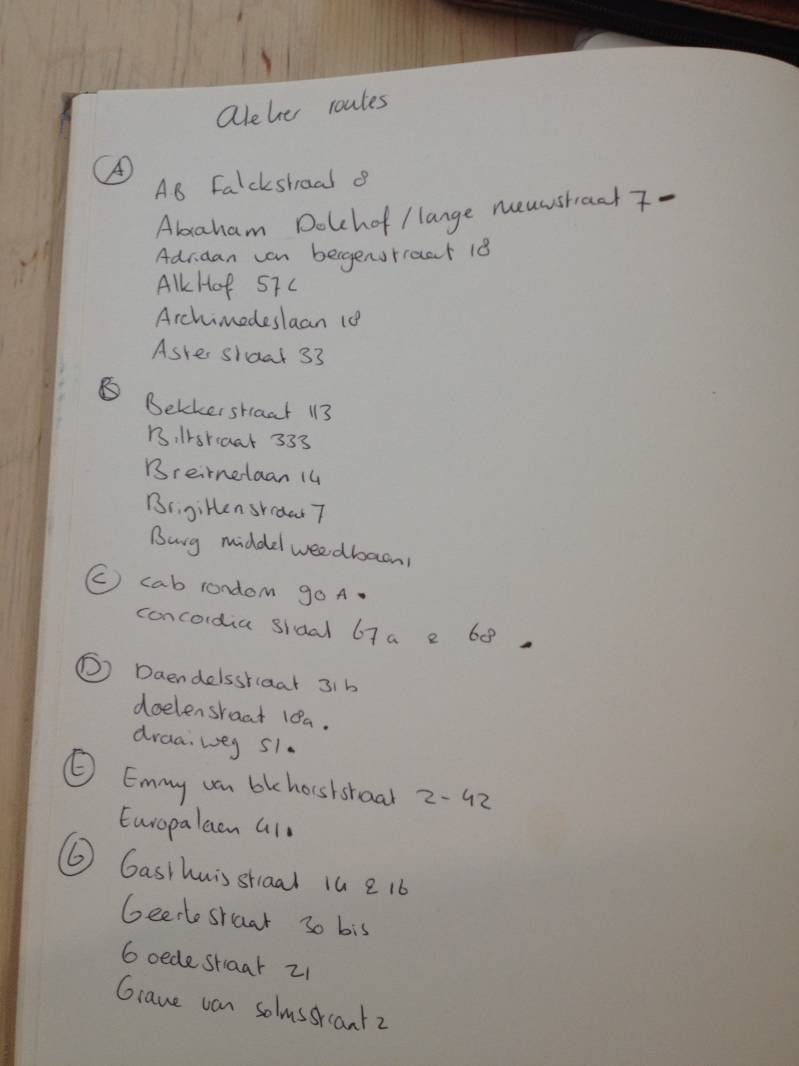 Atelier routes
A
AB Falckstraat 8
Abraham Dolehof / lange nieuwstraat 7 -
Adriaan van bergenstraat 18
AlkHof 57c
Archimedeslaan 18
Aster straat 33
B
Bekkerstraat 113
Biltstraat 333
Breitnerlaan 14
Brigittenstraat 7
Burg middelweerdbaan 1
C
cab rondom 90 A.
concordia straat 67a & 68 .
D
Daendelsstraat 31b
doelenstraat 18a.
draaiweg 51.
E
Emmy van straat 2-42
Europalaan 41.
G
Gasthuisstraat 14 & 16
Geertestraat 30 bis
Goedestraat 21
Grave van solmsstraat 2